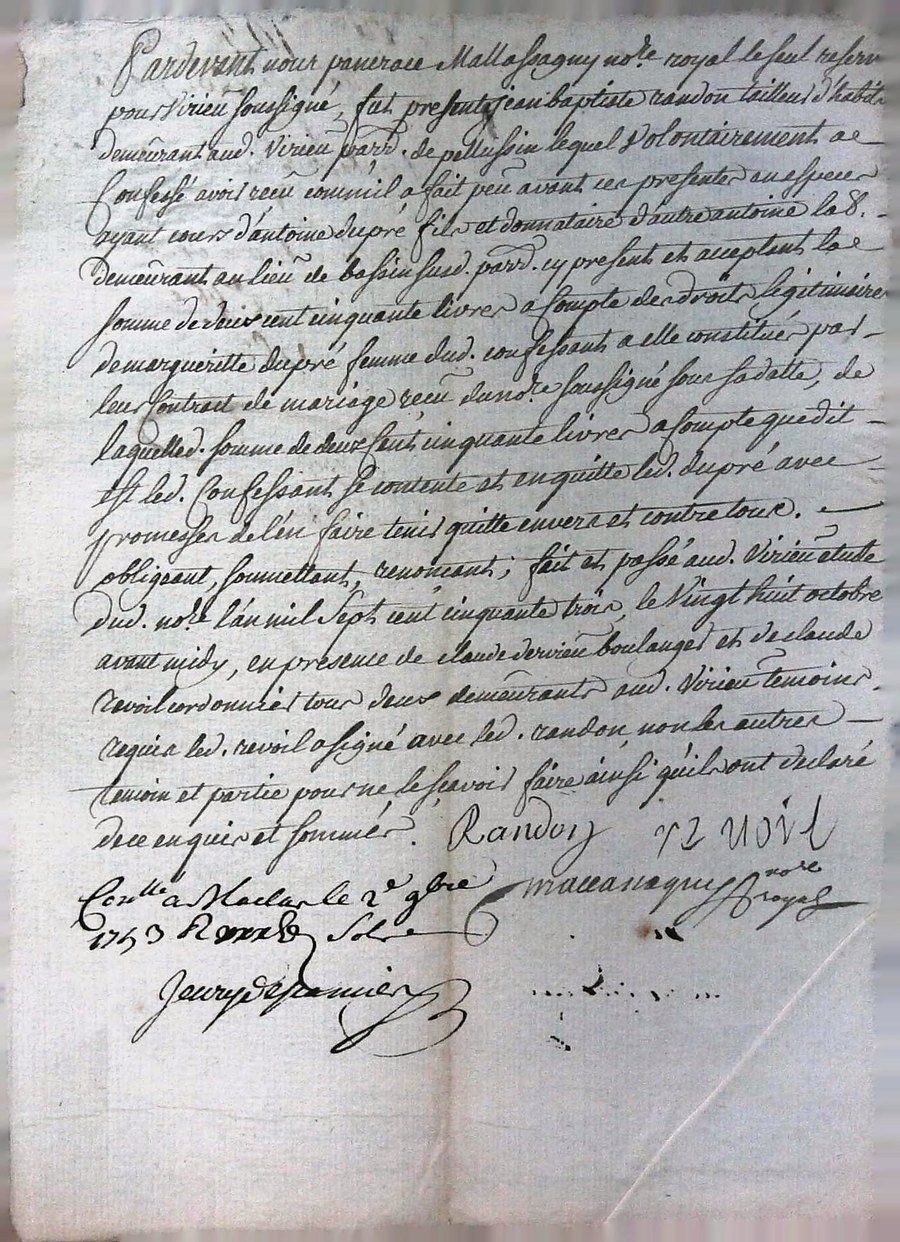 Pardevant nous panerace Mallassagny no.re royal le seul reservé
pour virieu soussigné, fut present jean baptiste randon tailleur d'habits
demeurant aud. virieu parr. de pellussin lequel volontairement a
Confessé avoir reçu comm'il a fait peu avant ces presentes en especes
ayant cours d'antoine dupré fils et donnataire d'autre antoine lab.
demeurant au lieu de bassin susd. parr. cy present et acceptant la
somme de deux cent cinquante livres a Compte des droits legitimaires
de margueritte dupré femme dud. confessant a elle constitués par
leur Contract de mariage reçu du no.re soussigné sous sa datte, de
laquelled. somme de deux Cent cinquante livres a Compte que dit
est led. Confessant se contente et en quitte led. dupré avec
promesses de l'en faire tenir quitte envers et contre tous.
obligeant, soumettant, renoncant; fait et passé aud. virieu etude
dud. no.re l'an mil sept cent cinquante trois, le vingt huit octobre
avant midy, en presence de claude dervieu boulanger et de claude
revoil cordonnier tous deux demeurants aud. virieu temoins
requis led. revoil a signé avec led. randon non les autres
temoin et partie pour ne le scavoir faire ainsi qu'ils ont declaré
de ce enquis et sommés. Randon revoil
Con.lle a Maclas le 2e 9bre
1753 Solz
no.re royal